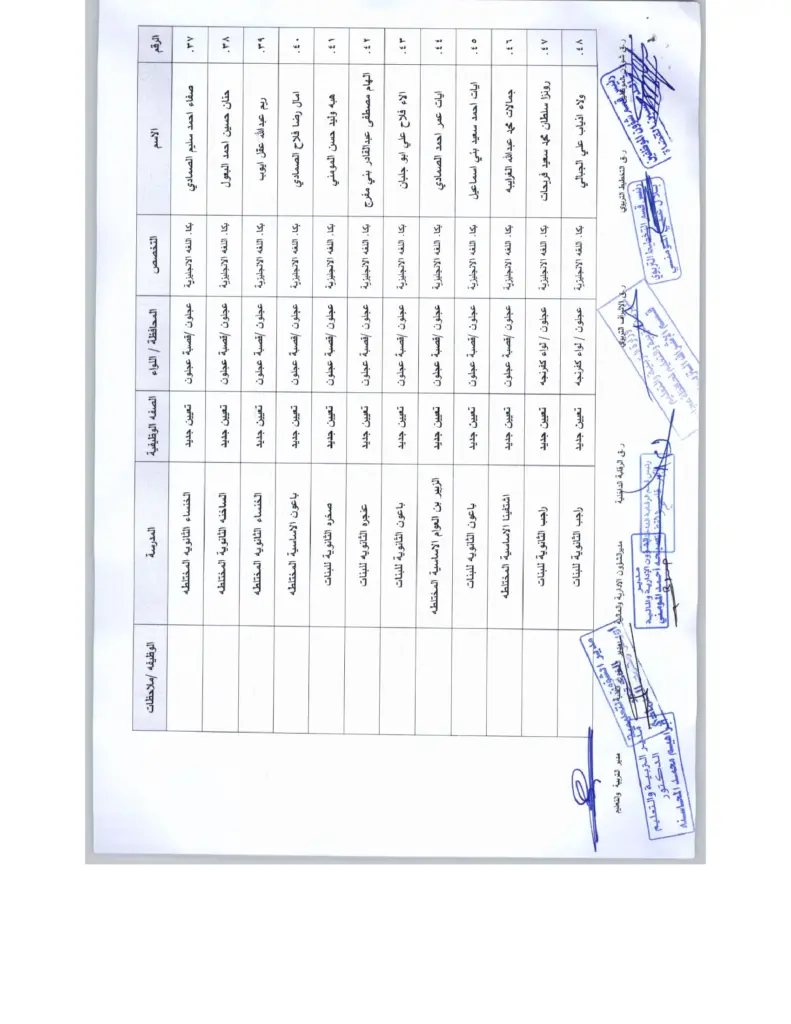 الرقم الاسم التخصص المحافظة / اللواء الصفه الوظيفية المدرسة الوظيفه /ملاحظات
٣٧. صفاء احمد سليم الصمادي بكا. اللغه الانجليزية عجلون /قصبة عجلون تعيين جديد الخنساء الثانويه المختلطه
٣٨. حنان حسين احمد البعول بكا. اللغه الانجليزية عجلون /قصبة عجلون تعيين جديد الساخنه الثانوية المختلطه
٣٩. ريم عبدالله عقل ايوب بكا. اللغه الانجليزية عجلون /قصبة عجلون تعيين جديد الخنساء الثانويه المختلطه
٤٠. امال رضا فلاح الصمادي بكا. اللغه الانجليزية عجلون /قصبة عجلون تعيين جديد باعون الاساسية المختلطه
٤١. هبه وليد حسن المومني بكا. اللغه الانجليزية عجلون /قصبة عجلون تعيين جديد صخره الثانوية للبنات
٤٢. الهام مصطفى عبدالقادر بني مفرج بكا. اللغه الانجليزية عجلون /قصبة عجلون تعيين جديد عنجره الثانويه للبنات
٤٣. الاء فلاح علي ابو جلبان بكا. اللغه الانجليزية عجلون /قصبة عجلون تعيين جديد باعون الثانوية للبنات
٤٤. ايات عمر احمد الصمادي بكا. اللغه الانجليزية عجلون /قصبة عجلون تعيين جديد الزبير بن العوام الاساسية المختلطه
٤٥. ايات احمد سعيد بني اسماعيل بكا. اللغه الانجليزية عجلون /قصبة عجلون تعيين جديد باعون الثانوية للبنات
٤٦. جمالات محمد عبدالله الغرايبه بكا. اللغه الانجليزية عجلون /قصبة عجلون تعيين جديد اشتفينا الاساسية المختلطه
٤٧. رونزا سلطان محمد سعيد فريحات بكا. اللغه الانجليزية عجلون / لواء كفرنجه تعيين جديد راجب الثانوية للبنات
٤٨. ولاء اذياب علي الجبالي بكا. اللغه الانجليزية عجلون / لواء كفرنجه تعيين جديد راجب الثانوية للبنات
ر.ق التخطيط التربوي ر.ق الاشراف التربوي ر.ق الرقابة الداخلية مدير الشؤون الادارية والمالية مدير التربية والتعليم
رئيس قسم التخطيط التربوي
مدير
الشؤون الإدارية والمالية
مدير التربية والتعليم
الدكتور
ابراهيم محمد المحاسنه